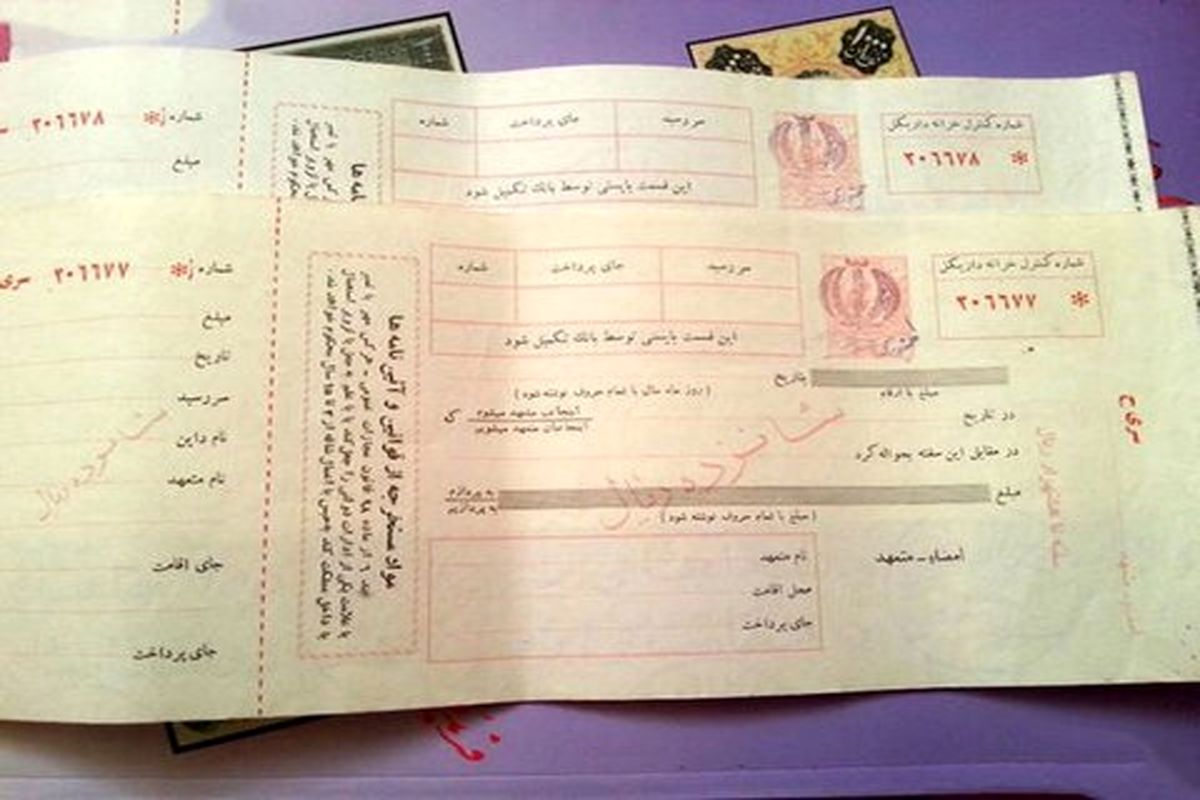 ۱۰۰۰
شماره کنترل خزانه داری کل
۲۰۶۶۷۸
سر رسید
جای پرداخت
شماره
این قسمت بایستی توسط بانک تکمیل شود
شماره
۲۰۶۶۷۸
مبلغ
شماره کنترل خزانه داری کل
۲۰۶۶۷۷
سر رسید
جای پرداخت
شماره
این قسمت بایستی توسط بانک تکمیل شود
بتاریخ
مبلغ با ارقام
( روز ماه سال با تمام حروف نوشته شود )
در تاریخ
اینجانب متعهد میشوم
اینجانبان متعهد میشویم
که
در مقابل این سفته بحواله کرد
مبلغ
به پردازم
به پردازیم
( مبلغ با تمام حروف نوشته شود )
شانزده ریال
امضاء - متعهد
نام متعهد
محل اقامت
جای پرداخت
سری ج
سفته تا هشتهزار ریال
مواد مستخرجه از قوانین و آئین نامه ها
شماره
۲۰۶۶۷۷
سری
مبلغ
تاریخ
سررسید
نام داین
نام متعهد
جای اقامت
جای پرداخت
شانزده ریال